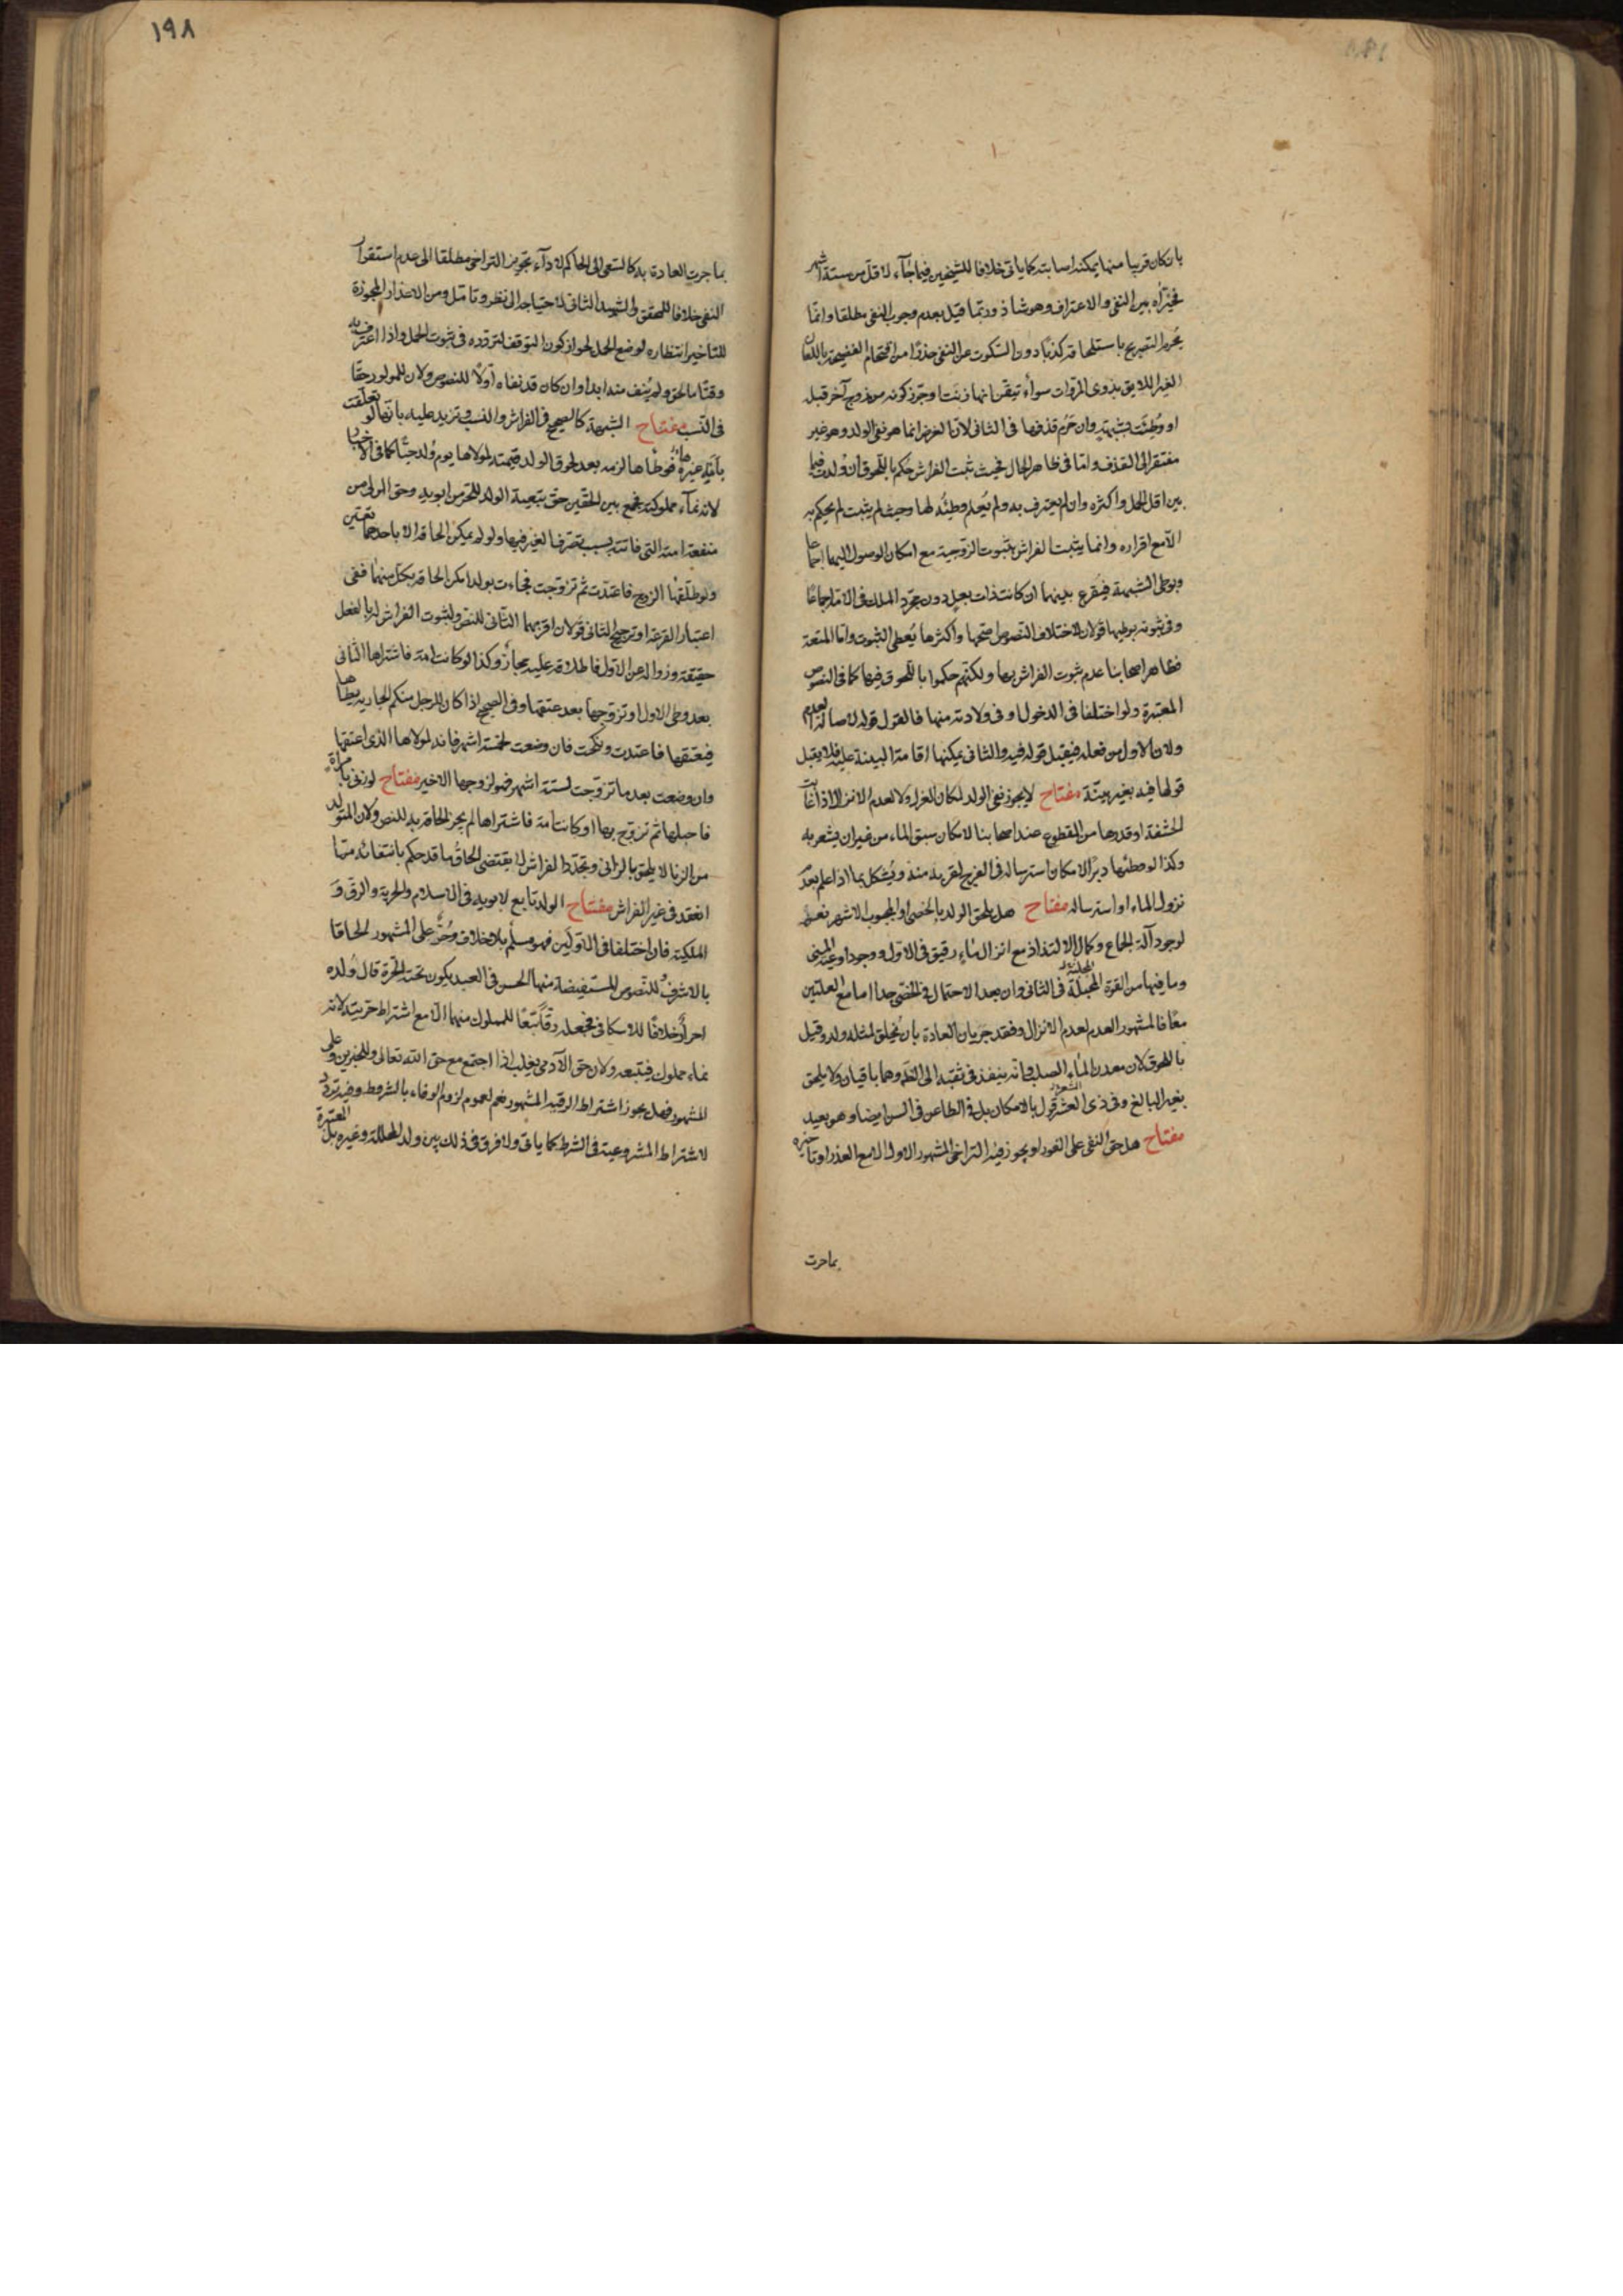 بان كان قريبا منها يمكنه اصابته كما ياتى خلافا للشيخين فيما جاء لاقل من ستة اشهر
فخيّراه بين النفى والاعتراف وهو شاذ وربّما قيل بعدم وجوب النفى مطلقا وانّما
يحرم التصريح باستلحاقه كذبًا دون السّكوت عن النفى حذرًا من اقتحام الفضيحة باللعان
الغير اللايق بذوى المروّات سواء تيقن انها زنت او جوّز كونه من زوج آخر قبله
او وُطِئَت بشبهة وان حَرُم قذفها فى الثانى لانّ الغرض انما هو نفى الولد وهو غير
مفتقر الى القذف وامّا فى ظاهر الحال فحيث ثبت الفراش حُكم باللّحوق ان ولدت فيما
بين اقل الحمل واكثره وان لم يعترف به ولم يُعلم وطيُه لها وحيث لم يثبت لم يحكم به
الاّ مع اقراره وانما يثبت الفراش بثبوت الزّوجية مع امكان الوصول اليها اجماعا
وبوطى الشبهة فيُقرع بينهما ان كانت ذات بعل دون مجرّد الملك فى الامة اجماعًا
وفى ثبوته بوطيها قولان لاختلاف النّصوص اصحّها واكثرها يُعطى الثبوت وامّا المتعة
فظاهر اصحابنا عدم ثبوت الفراش بها ولكنّهم حكموا باللّحوق فيها كما فى النّصوص
المعتبرة ولو اختلفا فى الدخول او فى ولادته منها فالقول قوله لاصالة العدم
ولانّ الاول من فعله فيقبل قوله فيه والثانى يمكنها اقامة البينة عليه فلا يقبل
قولها فيه بغير بيّنة مفتاح لا يجوز نفى الولد لمكان العزل ولا لعدم الانزال اذا غابت
الحشفة او قدرها من المقطوع عند اصحابنا لامكان سبق الماء من غير ان يشعر به
وكذا لو وطئها دبرًا لامكان استرساله فى الفرج لقربه منه ويُشكل بما اذا علم بعدُ
نزول الماء او استرساله مفتاح هل يلحق الولد بالخصىّ او المجبوب الاشهر نعم
لوجود آلة الجماع وكمال الالتذاذ مع انزال ماء رقيق فى الاول ووجود اوعية المنى
وما فيها من القوة المحيلة فى الثانى وان بعد الاحتمال فى الخصىّ جدا اما مع العلّتين
معًا فالمشهور العدم لعدم الانزال وفقد جريان العادة بان يُخلق لمثله ولد وقيل
باللحوق لان معدن الماء الصلب وانّه ينفذ فى ثقبه الى الظّهر وهما باقيان ولا يلحق
بغير البالغ وفى ذى العشر قول بالامكان بل فى الطاعن فى السن ايضا وهو بعيد
مفتاح هل حقّ النفى على الفور او يجوز فيه التراخى المشهور الاول الا مع العذر او تاخيره
بما جرت
١٩٨
بما جرت العادة به كالسّعى الى الحاكم لاداء تجويز التراخى مطلقا الى عدم استقرار
النفى خلافا للمحقق والشهيد الثانى لاحتياجه الى نظر وتامّل ومن الاعذار المجوزة
للتأخير انتظاره لوضع الحمل لجواز كون التوقف لتردده فى ثبوت الحمل واذا اعترف به
وقتًا ما لحق ولم يُنف منه ابدا وان كان قد نفاه اولاً للنصوص ولان للمولود حقّا
فى النّسب مفتاح الشبهة كالصحيح فى الفراش والنسب وتزيد عليه بانّها لو تعلّقت
بامَةِ غيره فوطأها لزمه بعد لحوق الولد قيمته لمولاها يوم وُلد حيًّا كما فى الاخبار
لانه نماء مملوكته فجمع بين الحقّين حقّ بتبعية الولد للحرّ من ابويه وحق المولى من
منفعة امته التى فاتته بسبب تصرف الغير فيها ولو لم يمكن الحاقه الا باحدهما تعيّن
ولو طلّقها الزوج فاعتدّت ثم تزوّجت فجاءت بولد امكن الحاقه بكلّ منهما ففى
اعتبار القرعة او ترجيح الثانى قولان اقربهما الثّانى للنص ولثبوت الفراش له بالفعل
حقيقة وزواله عن الاول فاطلاقه عليه مجاز وكذا لو كانت امة فاشتراها الثانى
بعد وطى الاول او تزوّجها بعد عتقها وفى الصحيح اذا كان للرجل منكم الجارية يطأها
فيعتقها فاعتدت ونكحت فان وضعت لخمسة اشهر فانه لمولاها الذى اعتقها
وان وضعت بعد ما تزوّجت لستة اشهر فهو لزوجها الاخير مفتاح لو زنى بامراة
فاحبلها ثم تزوّج بها او كانت امة فاشتراها لم يجز الحاقه به للنص ولان المتولد
من الزنا لا يلحق بالزانى وتجدّد الفراش لا يقتضى الحاق ما قد حكم بانتفائه متما
انعقد فى غير الفراش مفتاح الولد تابع لابويه فى الاسلام والحرية والرقّ و
الملكية فان اختلفا فى الاوّلين فهو مسلم بلا خلاف وحُرّ على المشهور الحاقا
بالاشرف للنّصوص المستفيضة منها الحسن فى العبد يكون تحته الحرّة قال وُلده
احرار خلافًا للاسكافى فجعله رقًّا تبعًا للمملوك منهما الاّ مع اشتراط حريته لانه
نماء مملوك فيتبعه ولان حق الآدمى يغلب اذا اجتمع مع حق الله تعالى وللخبرين وعلى
المشهور فهل يجوز اشتراط الرقية المشهور نعم لعموم لزوم الوفاء بالشروط وفيه تردّد
لاشتراط المشروعية فى الشرط كما ياتى ولا فرق فى ذلك بين ولد المحلّلة وغيره بل المعتبرة